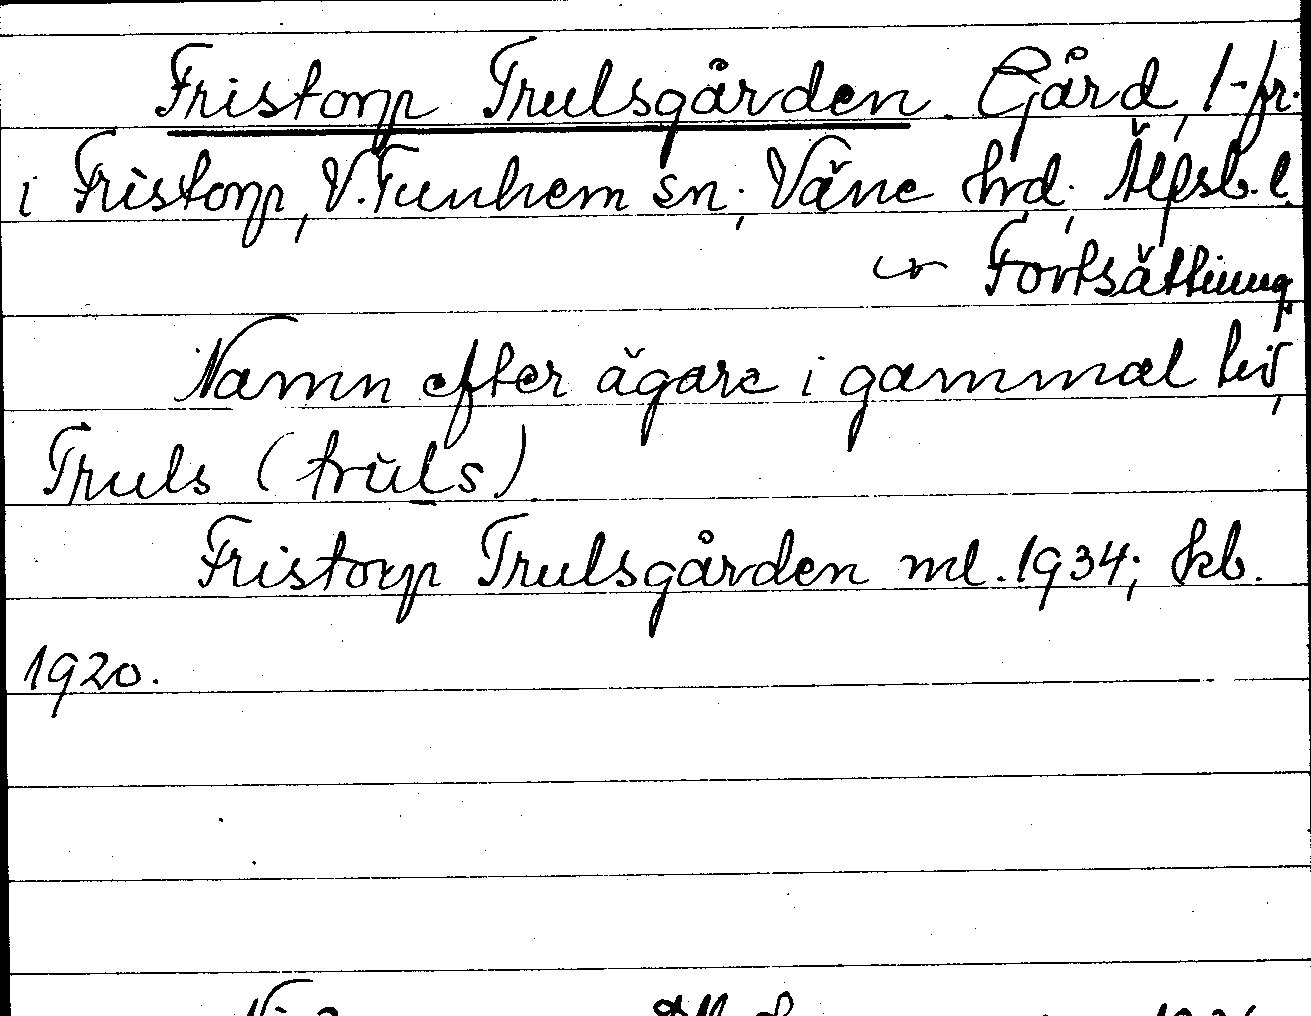 Fristorp Trulsgården. Gård, 1-fr.
i Fristorp, V. Tunhem sn; Väne hrd; Älfsb. l.
Fortsättning.
Namn efter ägare i gammal tid,
Truls (trùls)
Fristorp Trulsgården ml. 1934; kb.
1920.